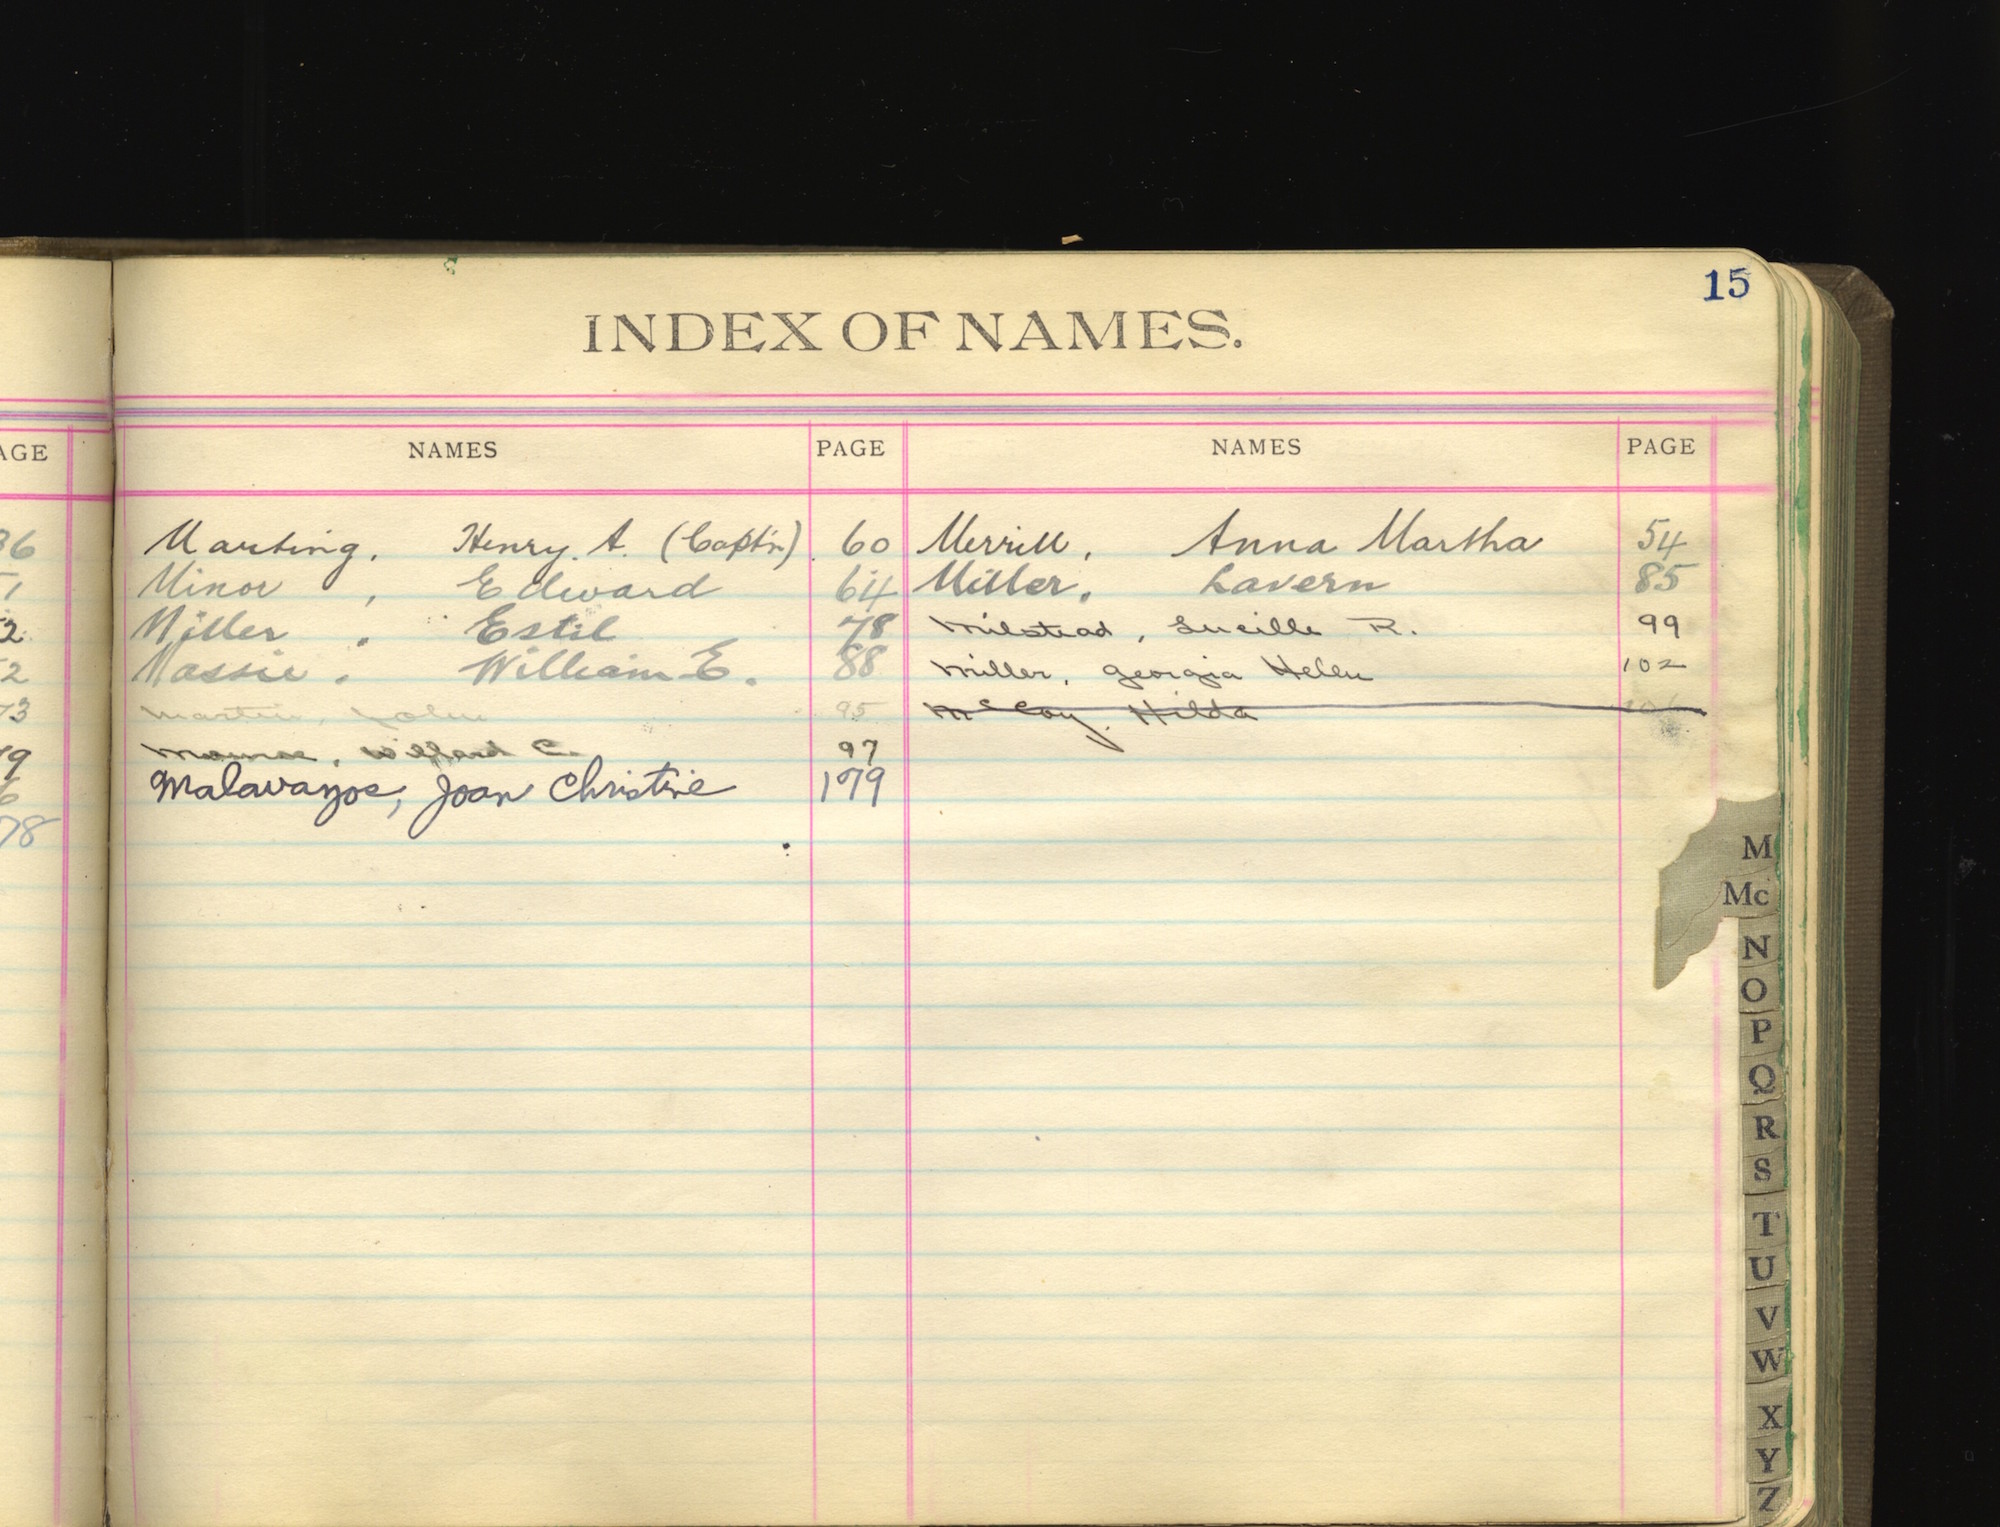 15
INDEX OF NAMES.
AGE
NAMES PAGE NAMES PAGE
36 Marting, Henry. A. (Capt'n). 60 Merrill, Anna Martha 54
Minor, Edward 64 Miller. Lavern 85
2 Miller. Estil 78 Milstead, Lucille R. 99
2 Massie. William E. 88 Miller, Georgia Helen 102
73 Martin, John 95 McCoy, Hilda 106
79 Wilfard C. 97
Malavazos, Joan Christine 179
78
M
Mc
N
O
P
Q
R
S
T
U
V
W
X
Y
Z